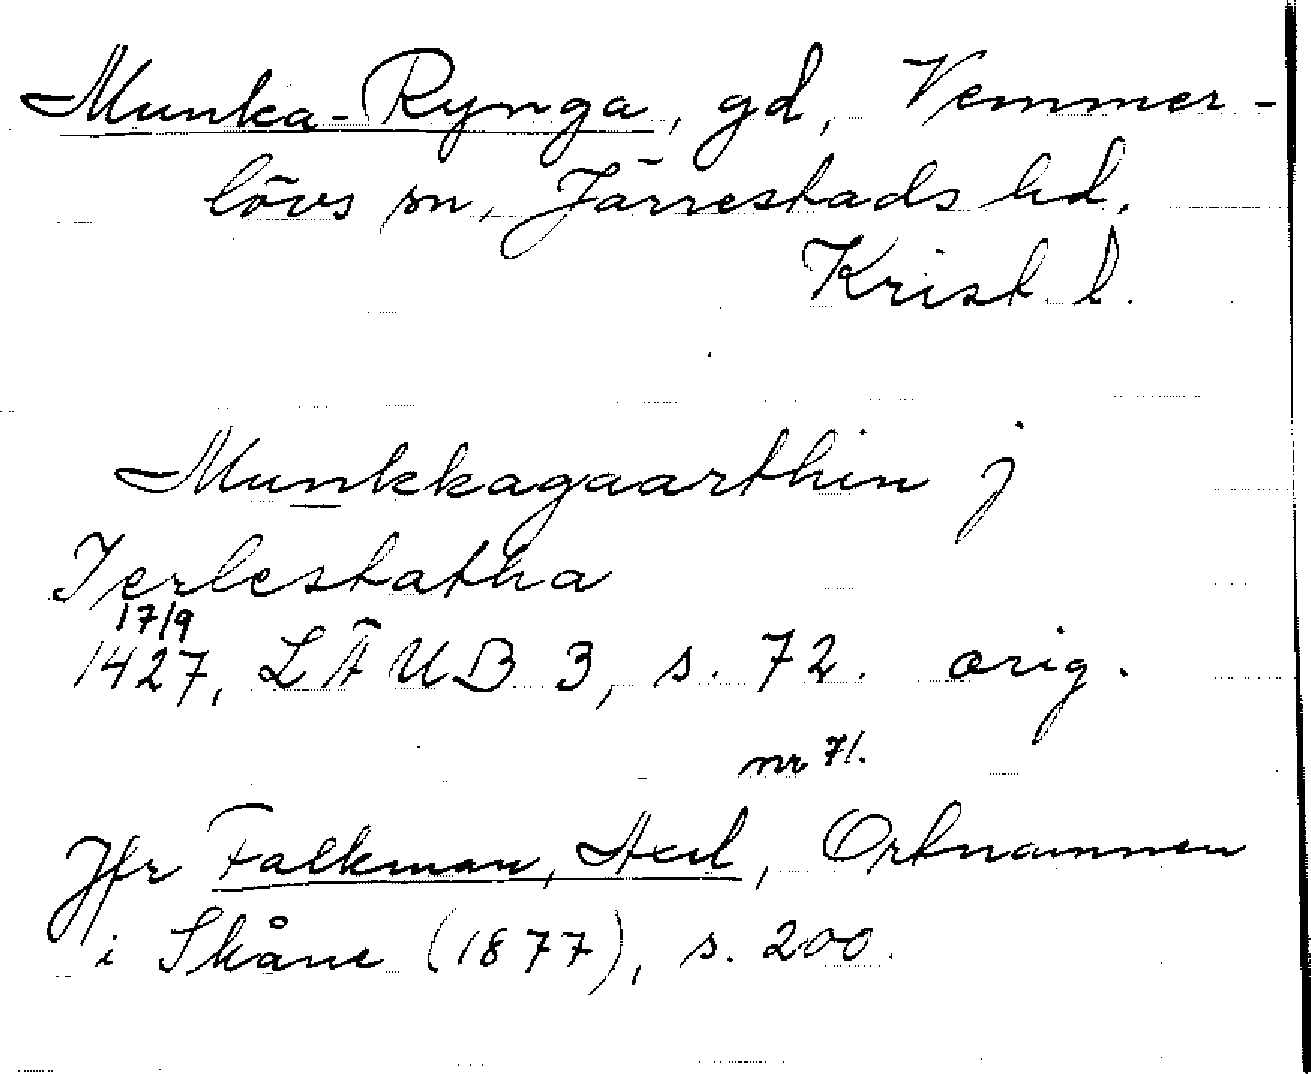 Munka-Rynga, gd, Vemmer-
lövs sn, Järrestads hd,
Krist. l.
Munkkagaarthin j
Jerlestatha
17/9
1427, LÄUB 3, s. 72. orig.
nr 71.
Jfr Falkman, Axel, Ortnamnen
i Skåne (1877), s. 200.